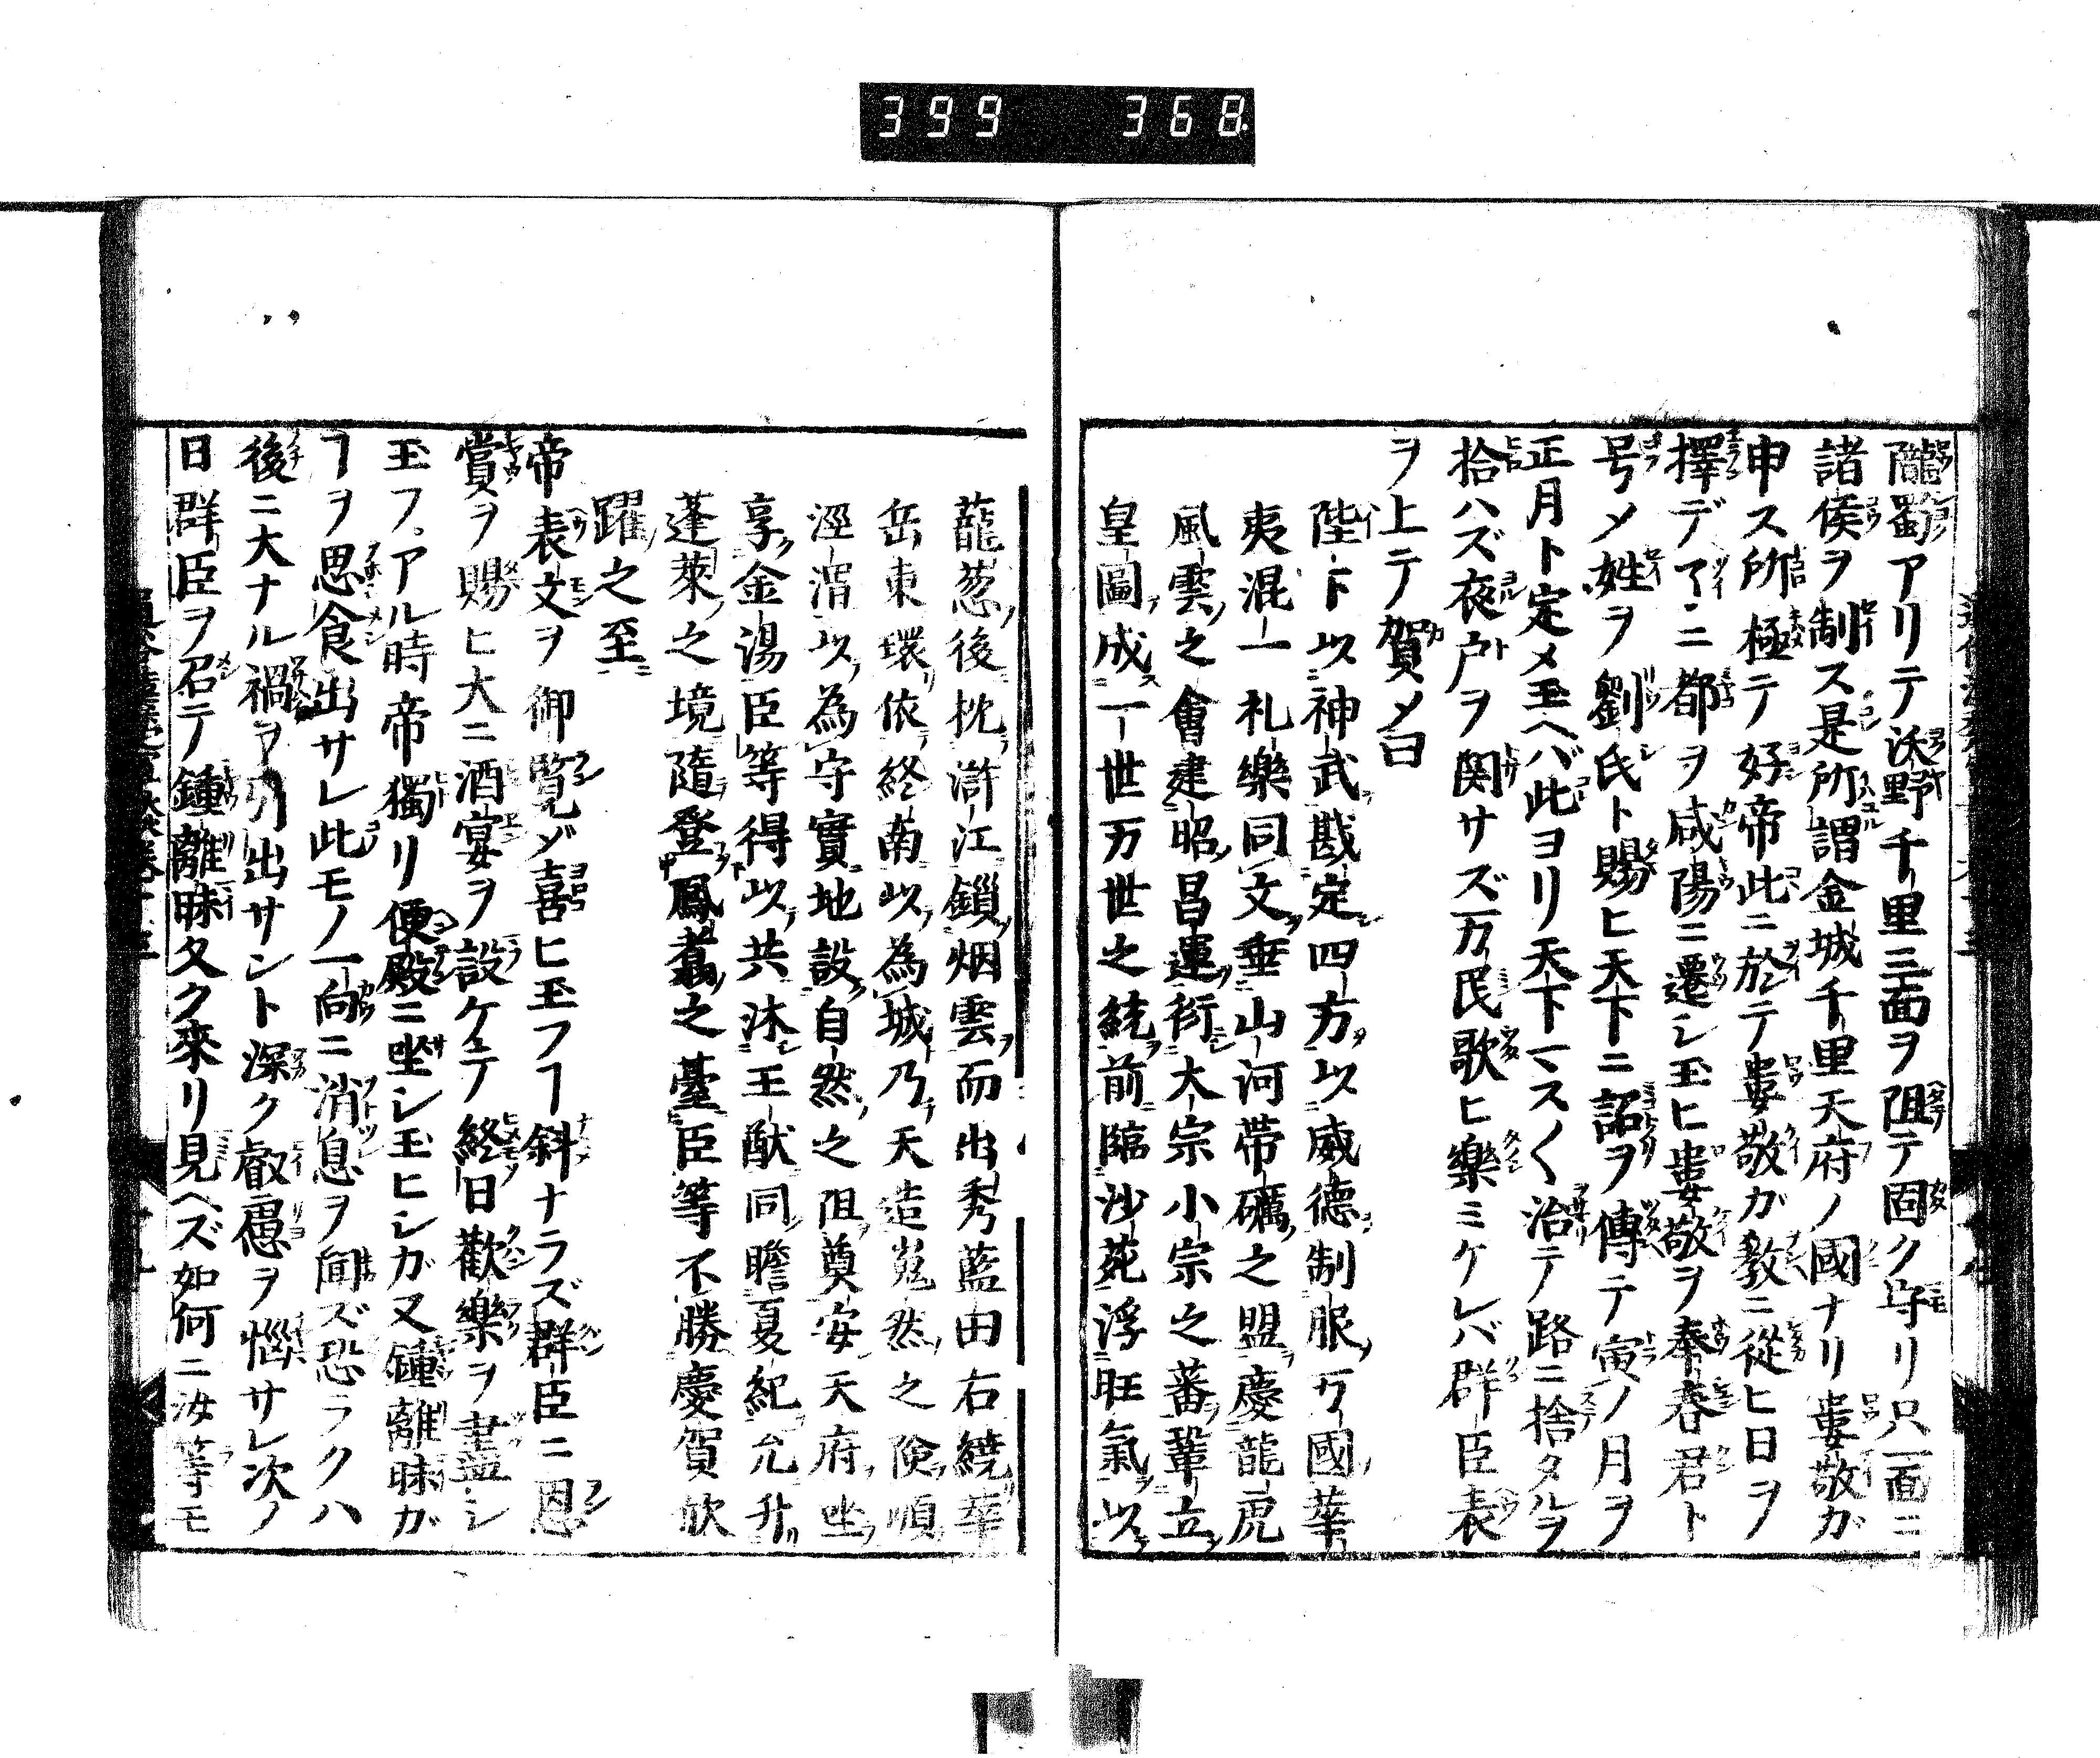 399 368
隴蜀アリテ沃野千里三面ヲ阻テ固ク守リ只一面ニ
諸侯ヲ制ス是所謂金城千里天府ノ國ナリ婁敬ガ
申ス所極テ好帝此ニ於テ婁敬ガ教ニ從ヒ日ヲ
擇デ了ニ都ヲ咸陽ニ遷シ玉ヒ婁敬ヲ奉春君ト
号メ姓ヲ劉氏ト賜ヒ天下ニ詔ヲ傳テ寅ノ月ヲ
正月ト定メ玉ヘバ此ヨリ天下マス〱治テ路ニ捨タルヲ
拾ハズ夜戸ヲ関サズ万民歌ヒ樂ミケレバ群臣表
ヲ上テ賀メ曰
陛下以神武戡定四方以威德制服万國華
夷混一礼樂同文垂山河帶礪之盟慶龍虎
風雲之會建昭昌運衍大宗小宗之蕃鞏立
皇圖成一世万世之統前臨沙苑浮旺氣以
蘢葱後枕滸江鎖烟雲而出秀藍田右繞華
岳東環依終南以為城乃天造嵬然之險順
涇渭以為守實地設自然之阻奠安天府坐
享金湯臣等得以共沐王猷同瞻夏紀允升
蓬萊之境隨登鳳翥之臺臣等不勝慶賀欣
躍之至
帝表文ヲ御覧ジ喜ヒ玉フヿ斜ナラズ群臣ニ恩
賞ヲ賜ヒ大ニ酒宴ヲ設ケテ終日歡樂ヲ盡シ
玉フ。アル時帝獨リ便殿ニ坐シ玉ヒシガ又鍾離昧ガ
ヿヲ思食出サレ此モノ一向ニ消息ヲ聞ズ恐ラクハ
後ニ大ナル禍ヲ引出サント深ク叡慮ヲ惱サレ次ノ
日群臣ヲ召テ鍾離昧久ク來リ見ヘズ如何ニ汝等モ